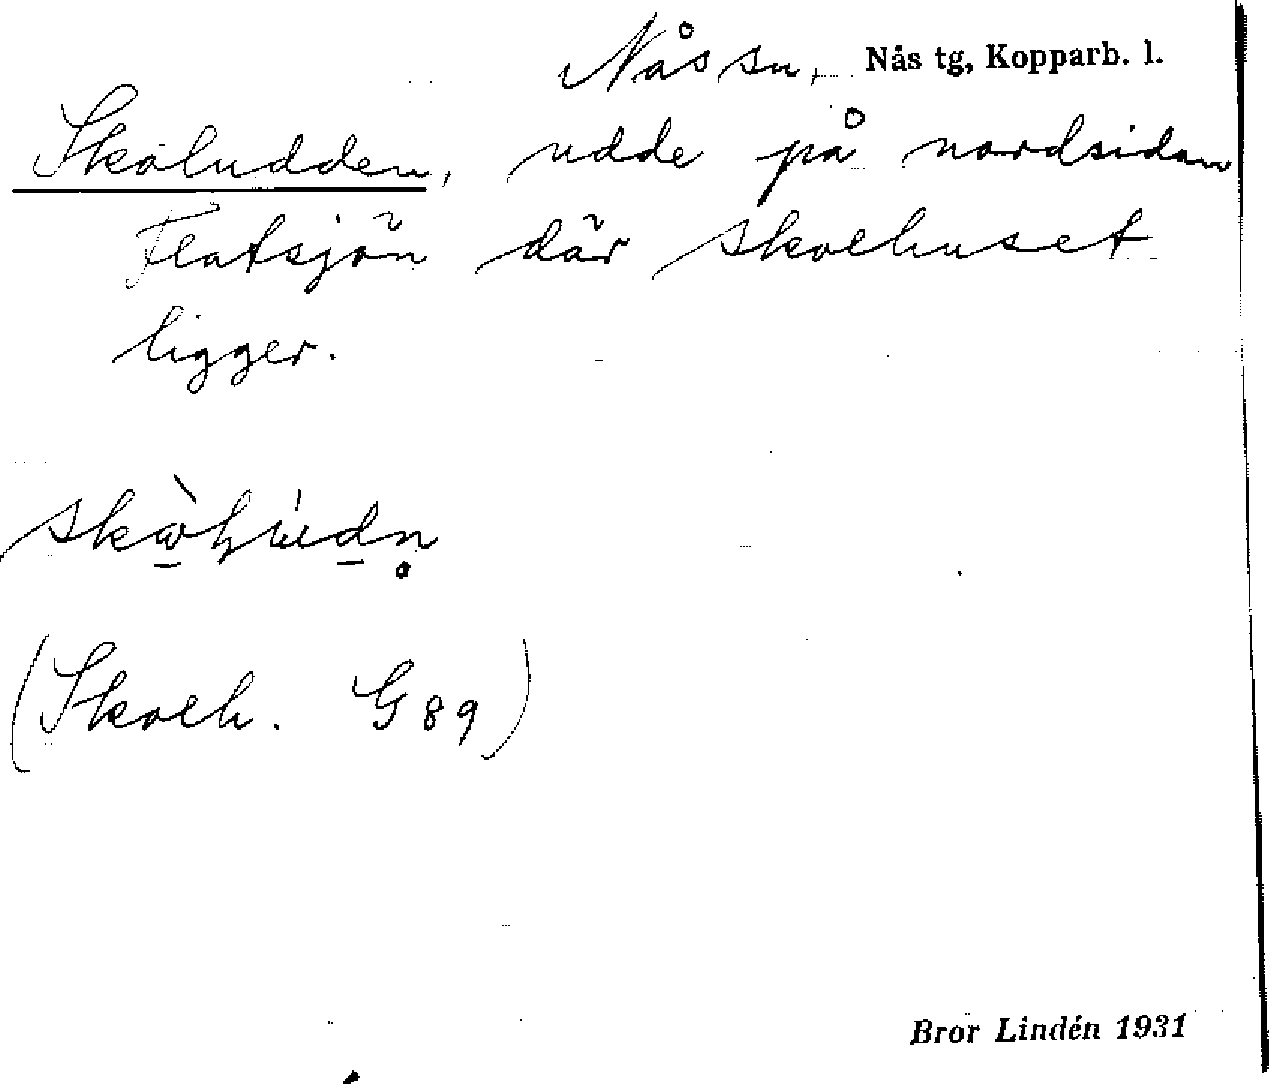 Nås sn, Nås tg, Kopparb. l.
Skoludden, udde på nordsidan
Flatsjön där skolhuset
ligger.
(Skolh. G 89)
Bror Lindén 1931